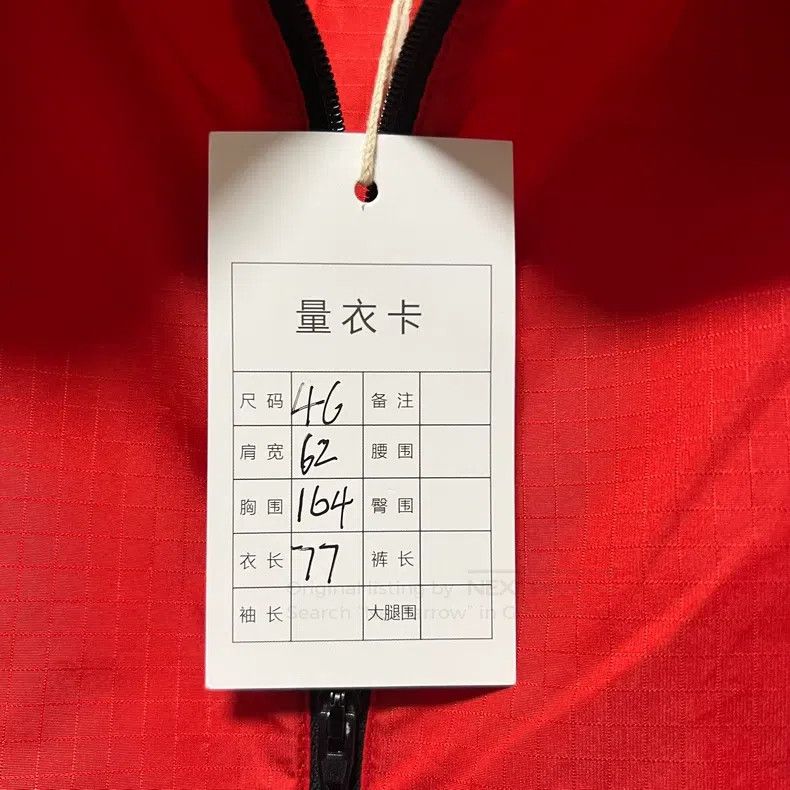 量衣卡
尺码 46 备注
肩宽 62 腰围
胸围 164 臀围
衣长 77 裤长
袖长 大腿围
Original listing by NEX
Search "
row" in C